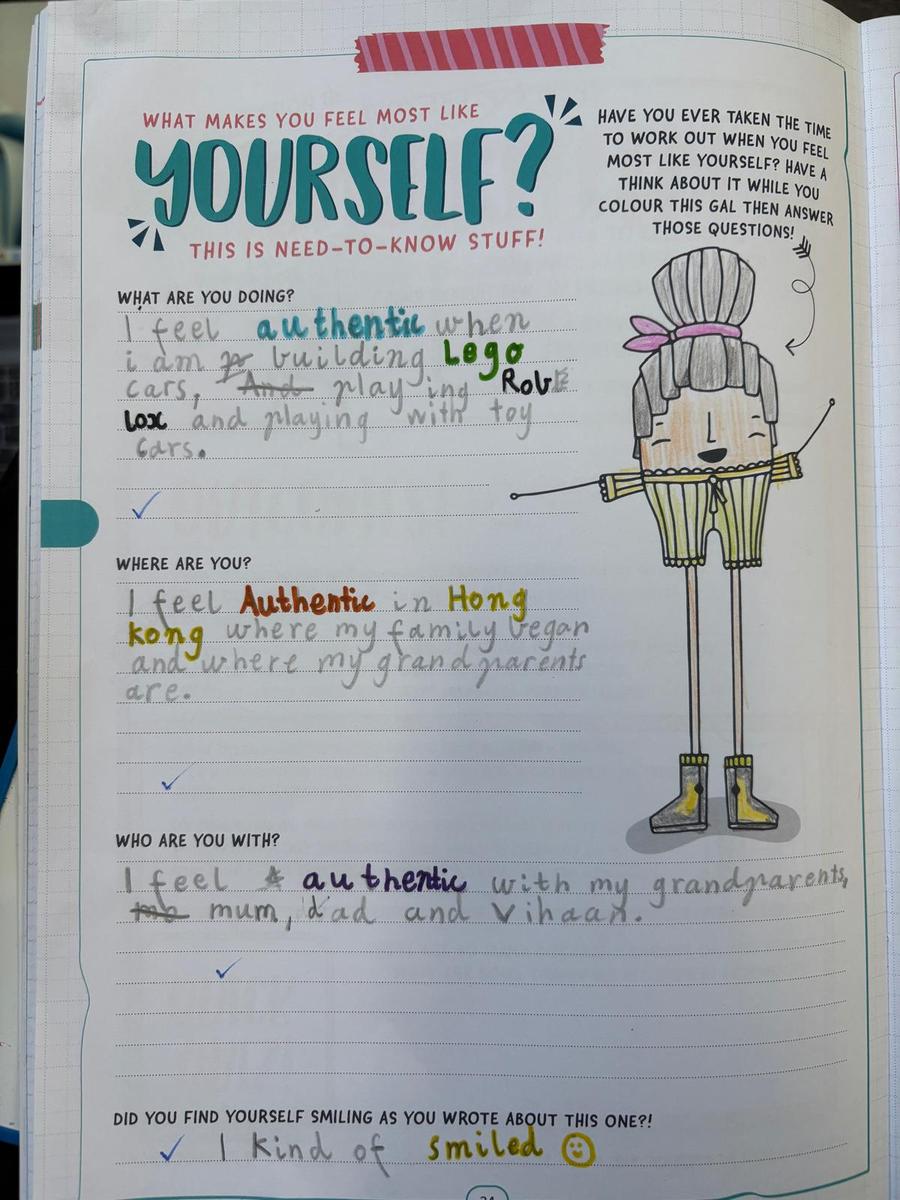 WHAT MAKES YOU FEEL MOST LIKE
YOURSELF?
THIS IS NEED-TO-KNOW STUFF!
HAVE YOU EVER TAKEN THE TIME
TO WORK OUT WHEN YOU FEEL
MOST LIKE YOURSELF? HAVE A
THINK ABOUT IT WHILE YOU
COLOUR THIS GAL THEN ANSWER
THOSE QUESTIONS!
WHAT ARE YOU DOING?
I feel authentic when
i am building Lego
cars, And playing Rob
lox and playing with toy
cars.
WHERE ARE YOU?
I feel Authentic in Hong
kong where my family began
and where my grandparents
are.
WHO ARE YOU WITH?
I feel authentic with my grandparents,
mum, dad and Vihaan.
DID YOU FIND YOURSELF SMILING AS YOU WROTE ABOUT THIS ONE?!
I kind of smiled